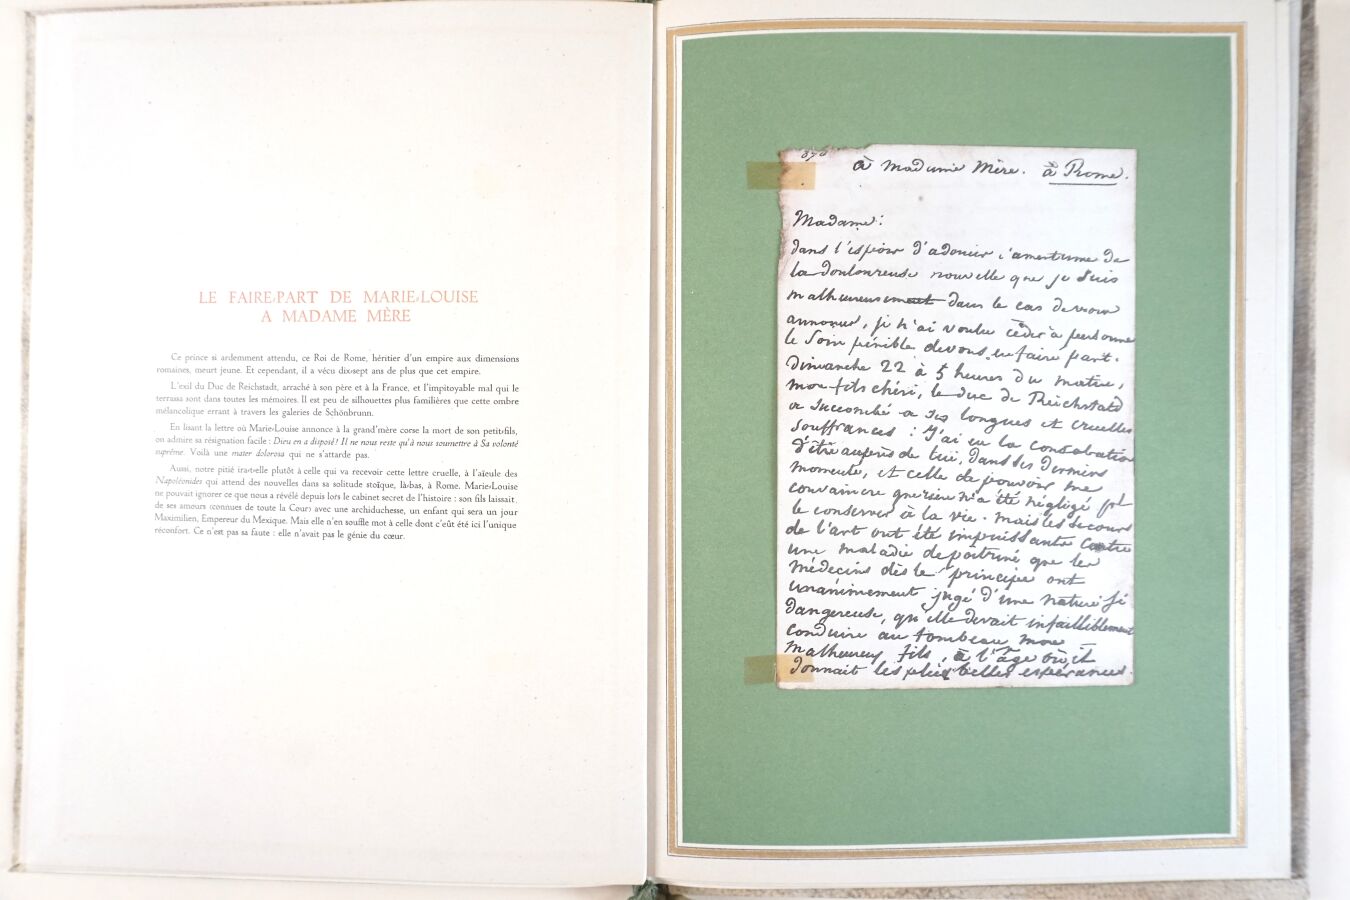 LE FAIRE-PART DE MARIE-LOUISE
A MADAME MÈRE
Ce prince si ardemment attendu, ce Roi de Rome, héritier d'un empire aux dimensions
romaines, meurt jeune. Et cependant, il a vécu dix-sept ans de plus que cet empire.
L'exil du Duc de Reichstadt, arraché à son père et à la France, et l'impitoyable mal qui le
terrassa sont dans toutes les mémoires. Il est peu de silhouettes plus familières que cette ombre
mélancolique errant à travers les galeries de Schönbrunn.
En lisant la lettre où Marie-Louise annonce à la grand'mère corse la mort de son petit-fils,
on admire sa résignation facile : Dieu en a disposé ! Il ne nous reste qu'à nous soumettre à Sa volonté
suprême. Voilà une mater dolorosa qui ne s'attarde pas.
Aussi, notre pitié ira-t-elle plutôt à celle qui va recevoir cette lettre cruelle, à l'aïeule des
Napoléonides qui attend des nouvelles dans sa solitude stoïque, là-bas, à Rome. Marie-Louise
ne pouvait ignorer ce que nous a révélé depuis lors le cabinet secret de l'histoire : son fils laissait,
de ses amours (connues de toute la Cour) avec une archiduchesse, un enfant qui sera un jour
Maximilien, Empereur du Mexique. Mais elle n'en souffle mot à celle dont c'eût été ici l'unique
réconfort. Ce n'est pas sa faute : elle n'avait pas le génie du cœur.
à Madame Mère. à Rome.
Madame:
dans l'espoir d'adoucir l'amertume de
la douloureuse nouvelle que je suis
malheureusement dans le cas de vous
annoncer, je n'ai voulu céder à personne
le soin pénible de vous en faire part.
Dimanche 22 à 5 heures du matin,
mon fils chéri, le duc de Reichstadt
a succombé a ses longues et cruelles
souffrances : J'ai eu la consolation
d'être auprès de lui, dans ses derniers
moments, et celle de pouvoir me
convaincre que rien n'a été négligé pr
le conserver à la vie. Mais les secours
de l'art ont été impuissants contre
une maladie de poitrine que les
médecins dès le principe ont
unanimement jugé d'une nature si
dangereuse, qu'elle devait infailliblement
conduire au tombeau mon
malheureux fils, à l'âge où il
donnait les plus belles espérances.